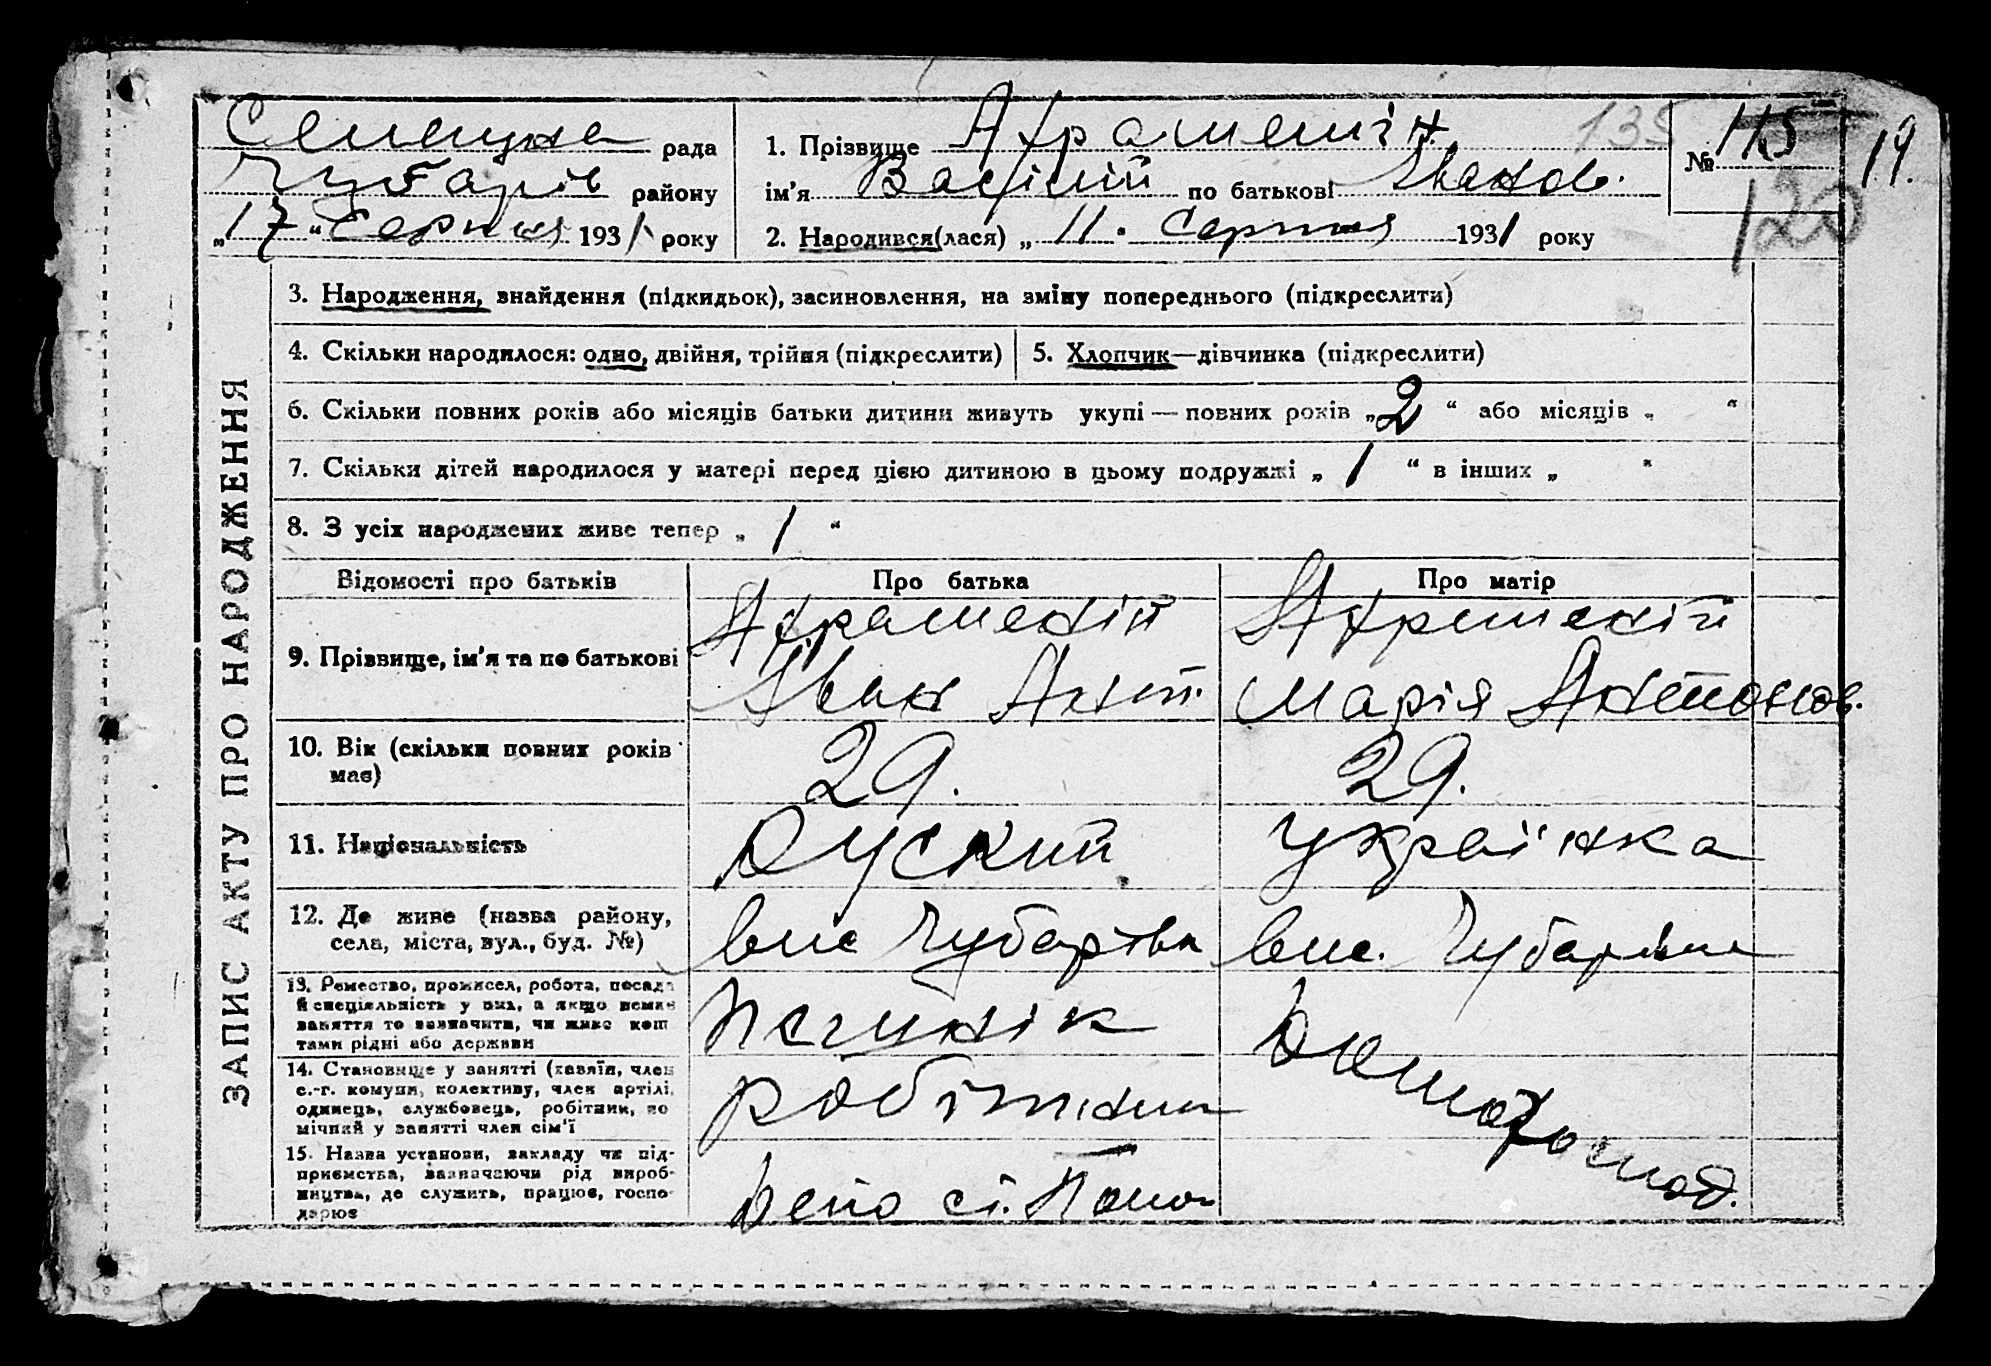 Селищна рада
Чубарів району
„17" Серпня 1931 року
1. Прізвище
ім'я Васілій по батькові Іванов.
2. Народився(лася) „11. Серпня 1931 року
135
№ 115
120
19.
ЗАПИС АКТУ ПРО НАРОДЖЕННЯ
3. Народження, знайдення (підкидьок), засиновлення, на зміну попереднього (підкреслити)
4. Скільки народилося: одно, двійня, трійня (підкреслити)
5. Хлопчик—дівчинка (підкреслити)
6. Скільки повних років або місяців батьки дитини живуть укупі — повних років „2" або місяців „ "
7. Скільки дітей народилося у матері перед цією дитиною в цьому подружжі „1" в інших „ "
8. З усіх народжених живе тепер „1"
Відомості про батьків Про батька Про матір
9. Прізвище, ім'я та по батькові
Іван Ант. Марія Антонов.
10. Вік (скільки повних років має) 29. 29.
11. Національність Руский Українка
12. Де живе (назва району, села, міста, вул., буд. №)
вис Чубарівка вис. Чубарівка
13. Ремество, промисел, робота, посада
й спеціяльність у них, а якщо немає
заняття то зазначити, чи живе кош
тами рідні або держави
14. Становище у занятті (хазяїн, член
с.-г. комуни, колективу, член артілі,
одинець, службовець, робітник, по
мічний у занятті член сім'ї
робітник
Домогоспод.
15. Назва установи, закладу чи під-
приємства, зазначаючи рід вироб-
ництва, де служить, працює, госпо-
дарює
Депо ст.